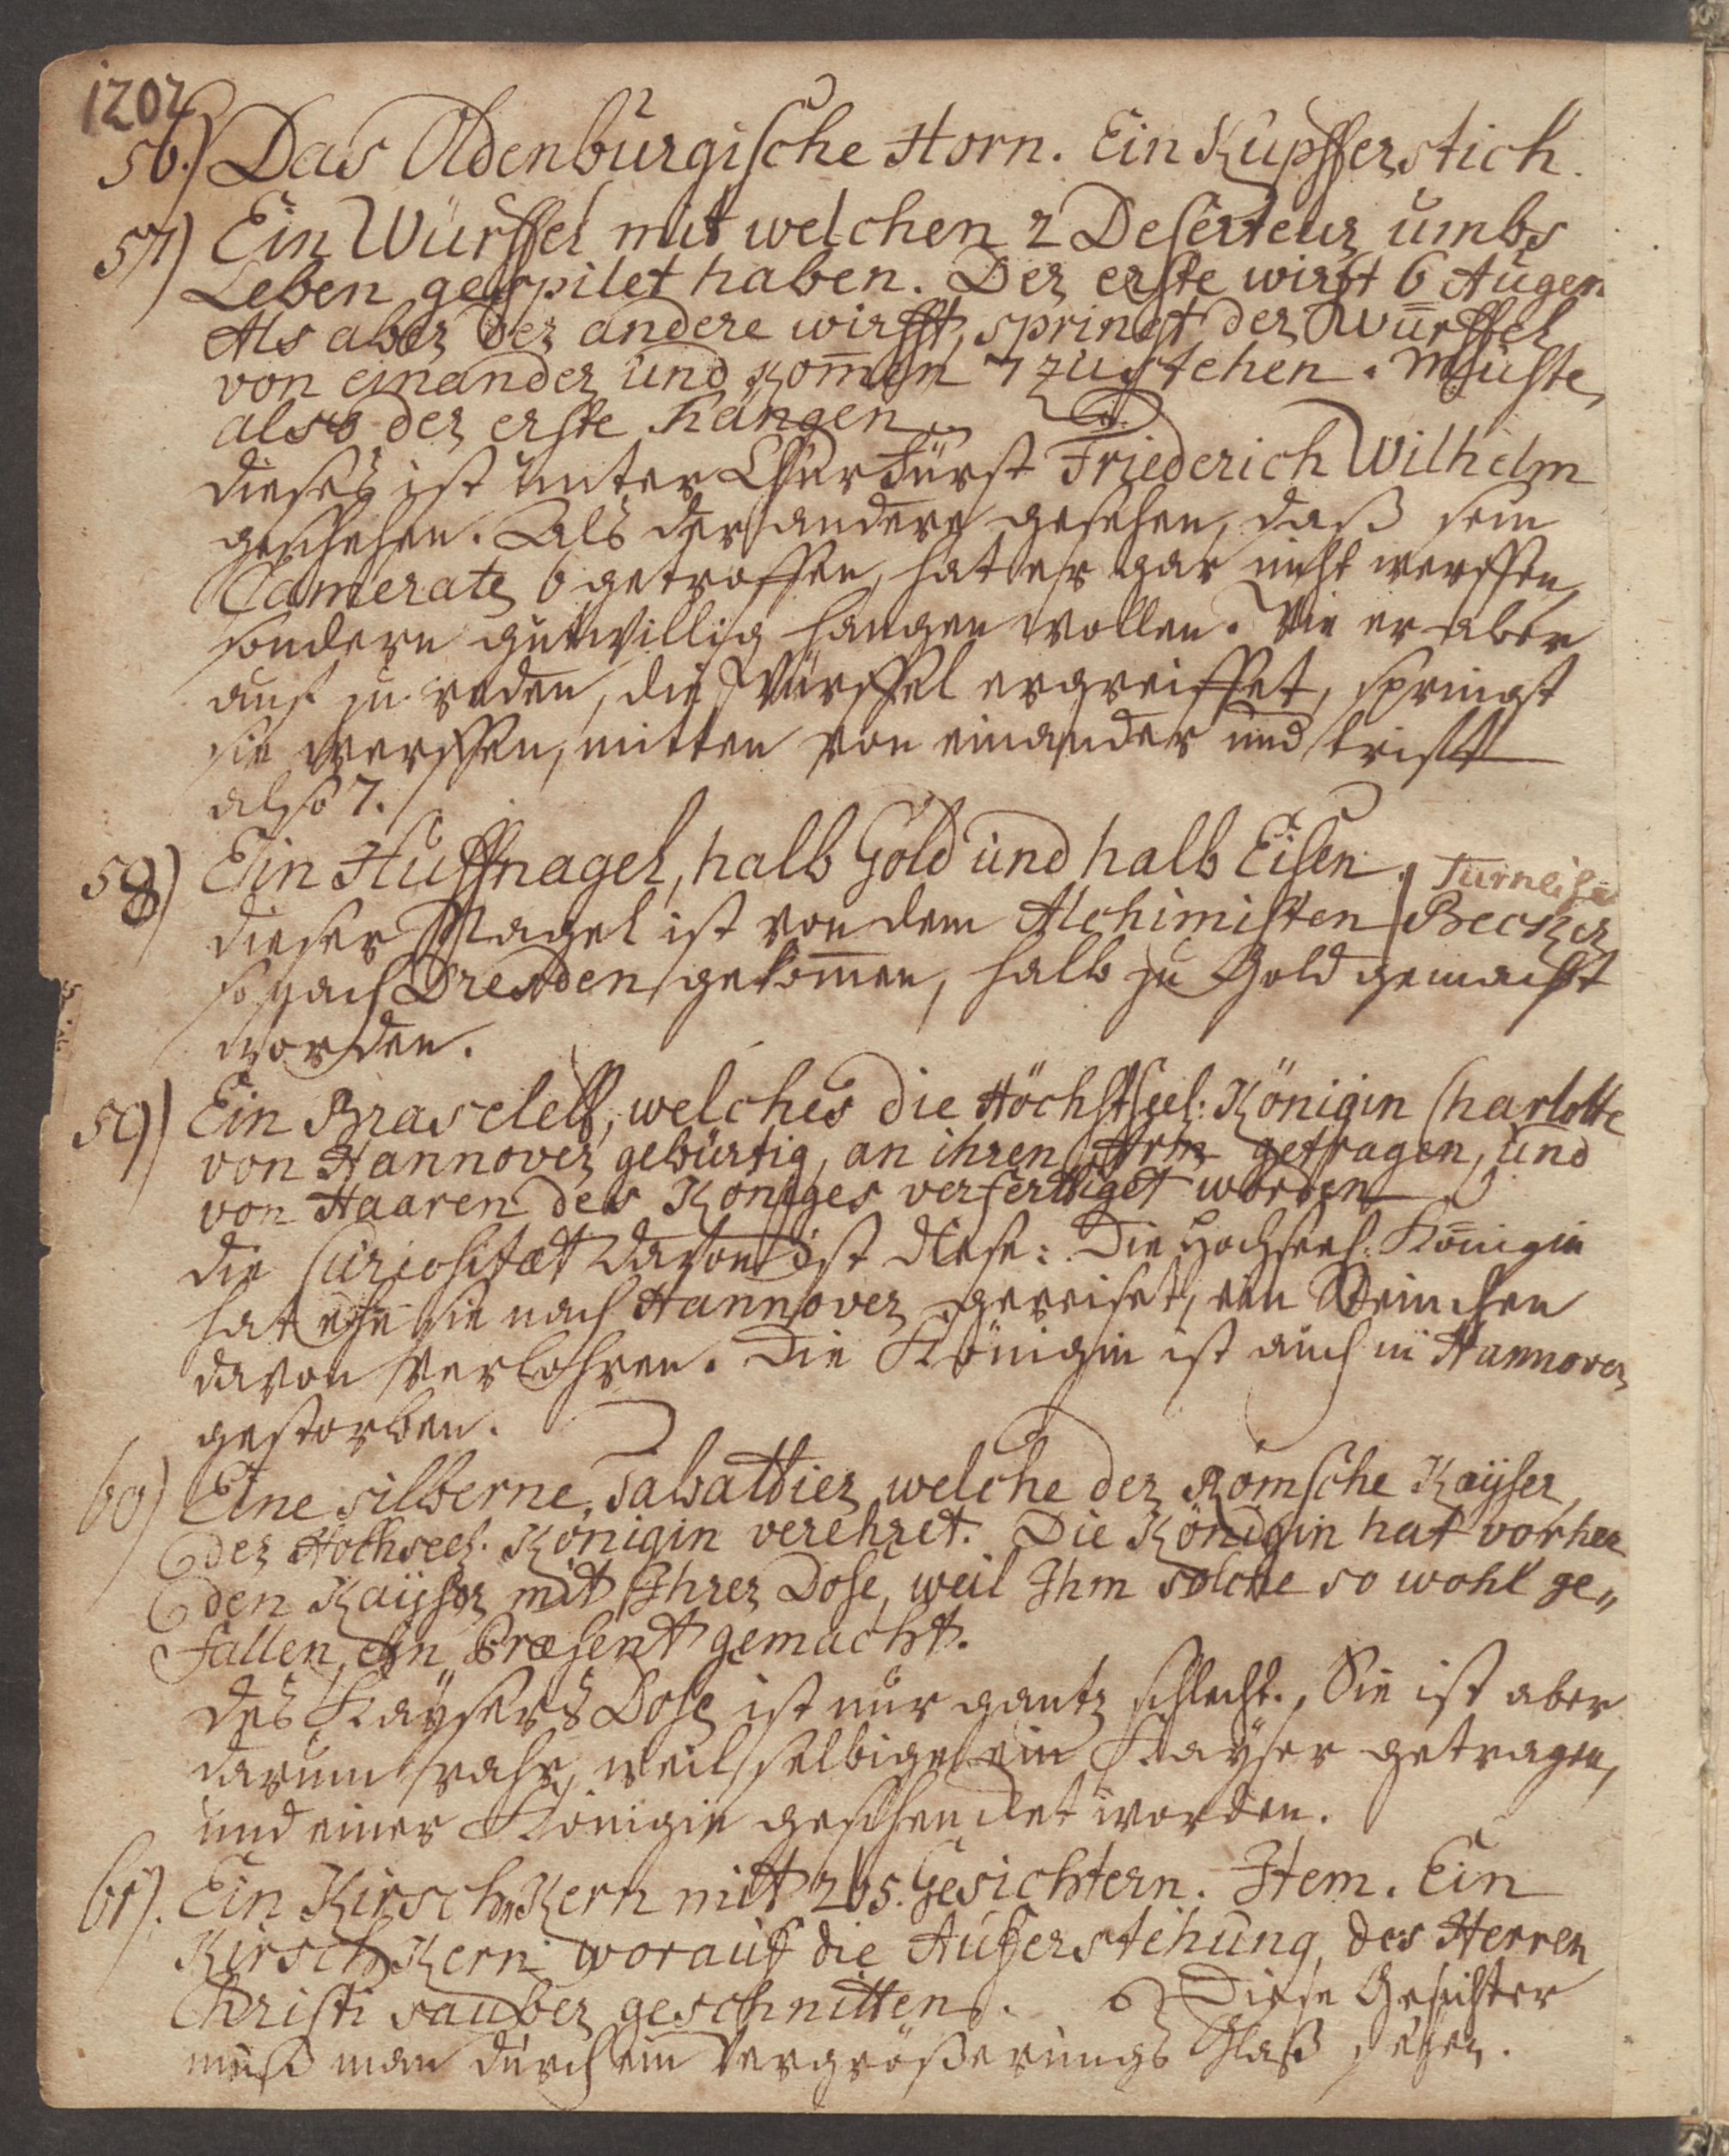 1202
56.) Das Oldenburgische Horn. Ein Kupfferstich.
57) Ein Würffel mit welchen 2 Deserteur umbs
Leben gespilet haben. Der erste wirft 6 Augen
Als aber der andere wirfft, springt der Würffel
von einander und kom̄en 7 zu stehen. Muste
also der erste hängen.
dieses ist unter Churfürst Friederich Wilhelm
geschehen. Als der andere gesehen, daß sein
Camerate 6 getroffen, hat er gar nicht werffen,
sondern gutwillig hangen wollen. Wie er aber
auf zu reden, die Würffel ergreiffet, springt
sie werffen, mitten von einander und trifft
also 7.
58) Ein Huffnagel, halb Gold und halb Eisen.
Turneisen
dieser Nagel ist von dem Alchimisten Becker
so nach Dresden gekom̄en, halb zu Gold gemacht
worden.
59) Ein Braselett, welches die Höchstseel: Königin Charlotte
von Hannover gebürtig, an ihren Arm getragen, und
von Haaren des Königes verfertiget worden
die Curiositæt davon ist diese: Die Hochseel: Königin
hat ehe sie nach Hannover gereiset, ein Steinchen
davon verlohren. Die Königin ist auch in Hannover
gestorben.
60) Eine silberne Tabattier welche der Römsche Kayser
der Hochseel. Königin verehret. Die Königin hat vorher
den Kayser mit Ihrer Dose, weil Ihm solche so wohl ge„
fallen, ein Præsent gemacht.
des Kaysers Dose ist nur gantz schlecht. Sie ist aber
darum rahr, weil selbige ein Kayser getragen,
und einer Königin geschencket worden.
61). Ein Kirsch Kern mit 205. Gesichtern. Item. Ein
Kirsch Kern worauf die Aufferstehung des Herren
Christi sauber geschnitten. Diese Gesichter
muß man durch ein Vergrößerungs Glaß sehen.